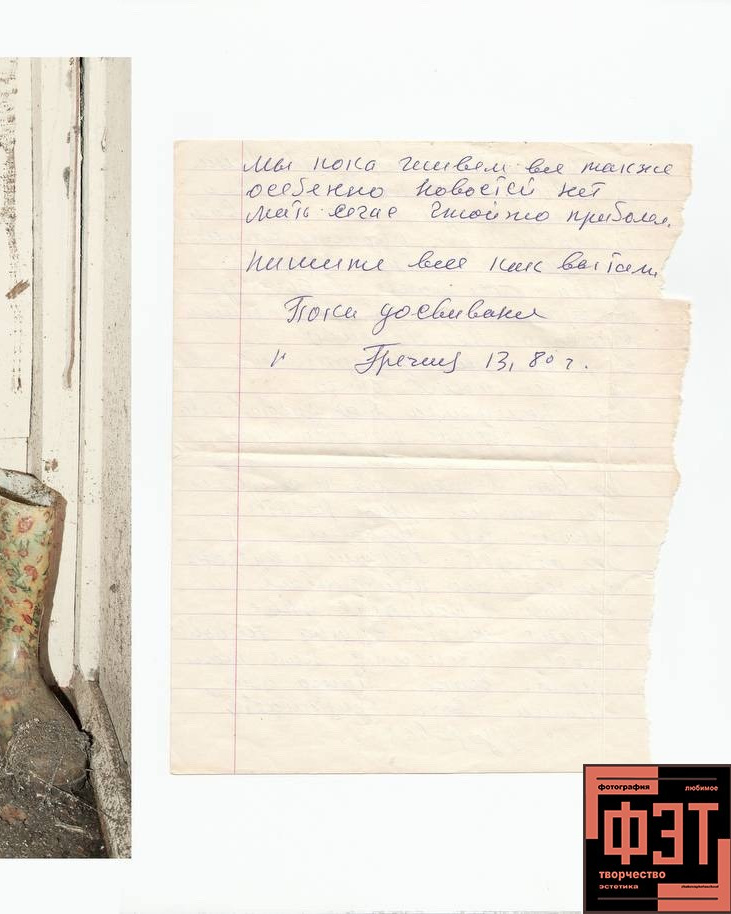 Мы пока живем все также
особенно новостей нет
мать сечас
Пишите все как вы там.
Пока досвидания
13, 80 г.
фотография
любимое
ФЭТ
творчество
эстетика